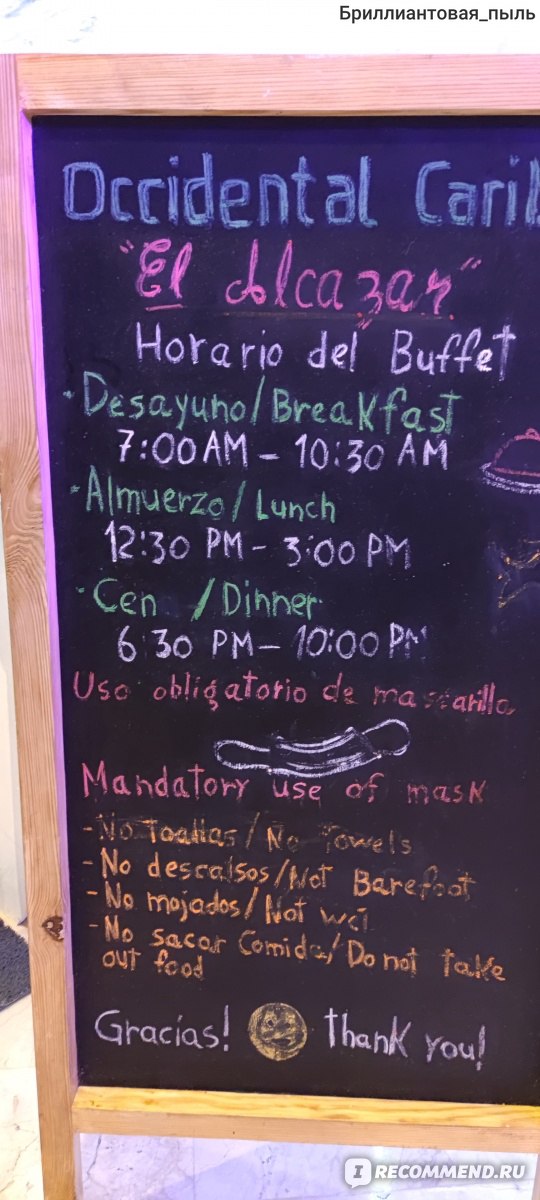 Бриллиантовая_пыль
Occidental Carib
"El Alcazar"
Horario del Buffet
· Desayuno/Breakfast
7:00 AM - 10:30 AM
· Almuerzo/Lunch
12:30 PM - 3:00 PM
· Cen /Dinner
6 30 PM - 10:00 PM
Uso obligatorio de mascarilla
Mandatory use of mask
- No toallas/No Towels
- No descalsos/Not Barefoot
- No mojados/Not wet
- No sacar Comida/Do not take
out food
Gracias! thank you!
IRECOMMEND.RU